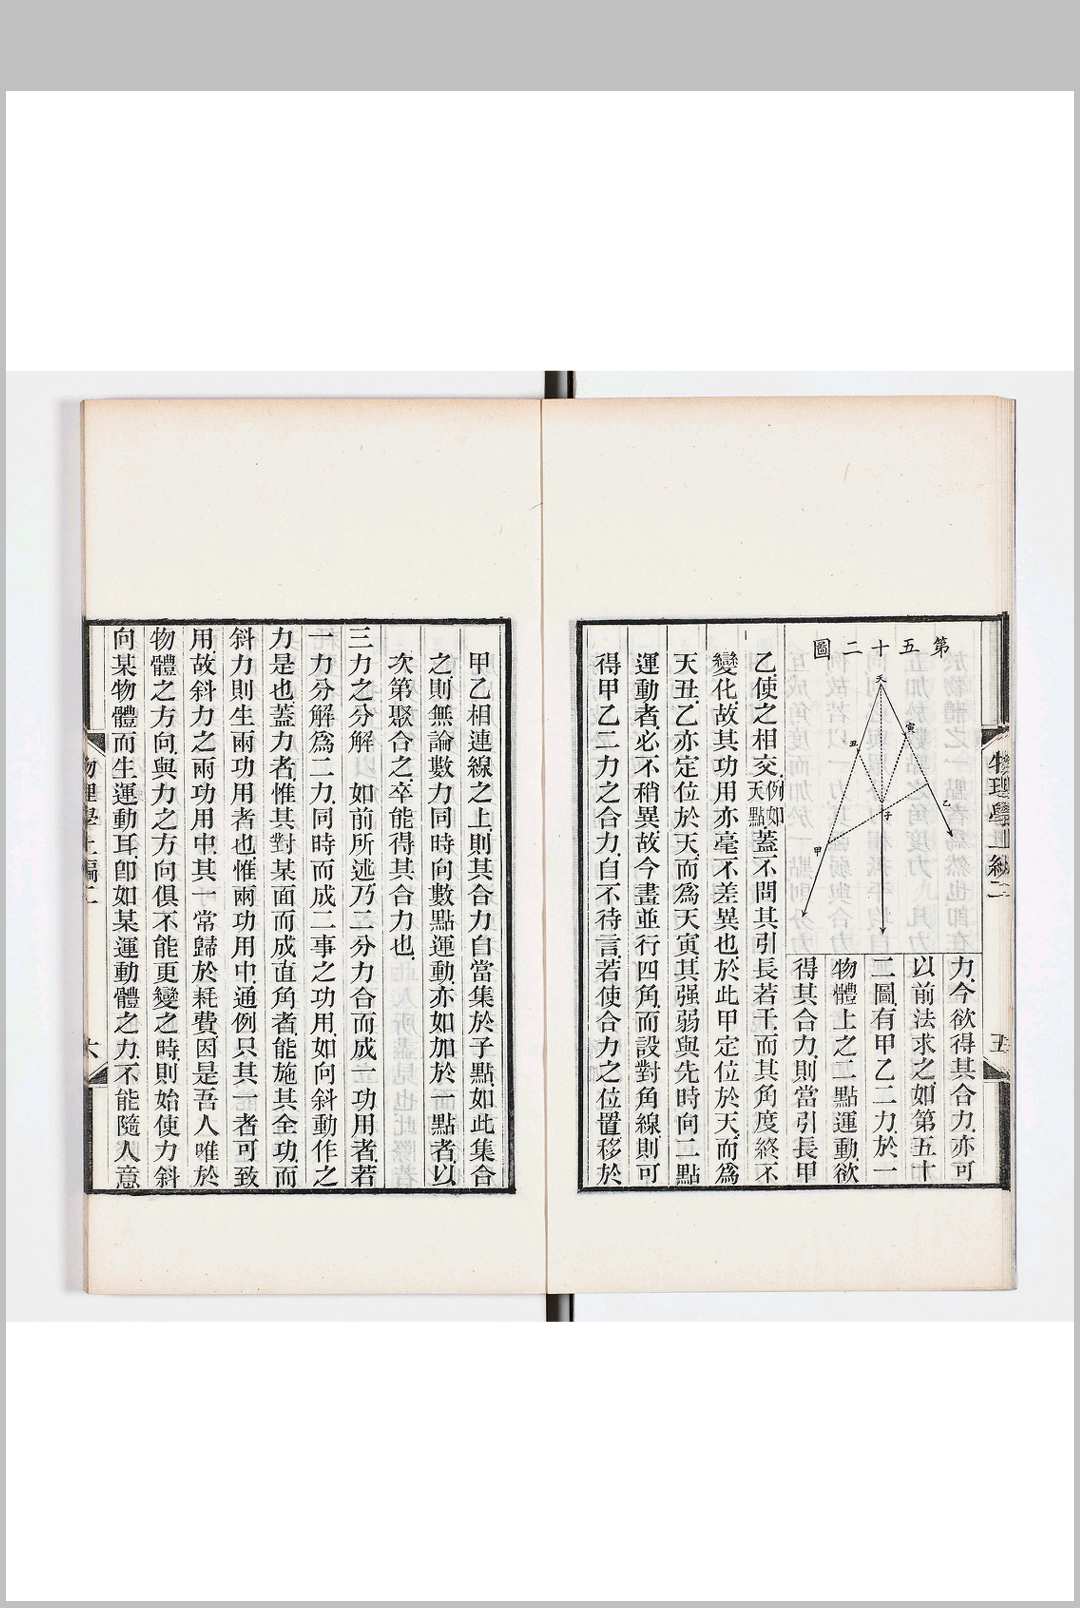 物理學上編二
五
第五十二圖
天
寅
丑
子
乙
甲
力、今欲得其合力、亦可
以前法求之、如第五十
二圖有甲乙二力、於一
物體上之二點運動、欲
得其合力、則當引長甲
乙、使之相交、例如天點蓋不問其引長若干、而其角度終不
變化、故其功用亦毫不差異也、於此甲定位於天、而爲
天丑、乙亦定位於天、而爲天寅、其强弱與先時向二點
運動者、必不稍異、故今畫並行四角、而設對角線、則可
得甲乙二力之合力、自不待言、若使合力之位置移於
甲乙相連線之上、則其合力自當集於子點、如此集合
之、則無論數力同時向數點運動、亦如加於一點者、以
次第聚合之、卒能得其合力也、
三力之分解 如前所述、乃二分力合而成一功用者、若
一力分解爲二力、同時而成二事之功用、如向斜動作之
力是也、蓋力者、惟其對某面而成直角者、能施其全功、而
斜力則生兩功用者也、惟兩功用中、通例只其一者可致
用、故斜力之兩功用中、其一常歸於耗費、因是吾人唯於
物體之方向、與力之方向俱不能更變之時、則始使力斜
向某物體而生運動耳、卽如某運動體之力、不能隨人意
物理學上編二
六